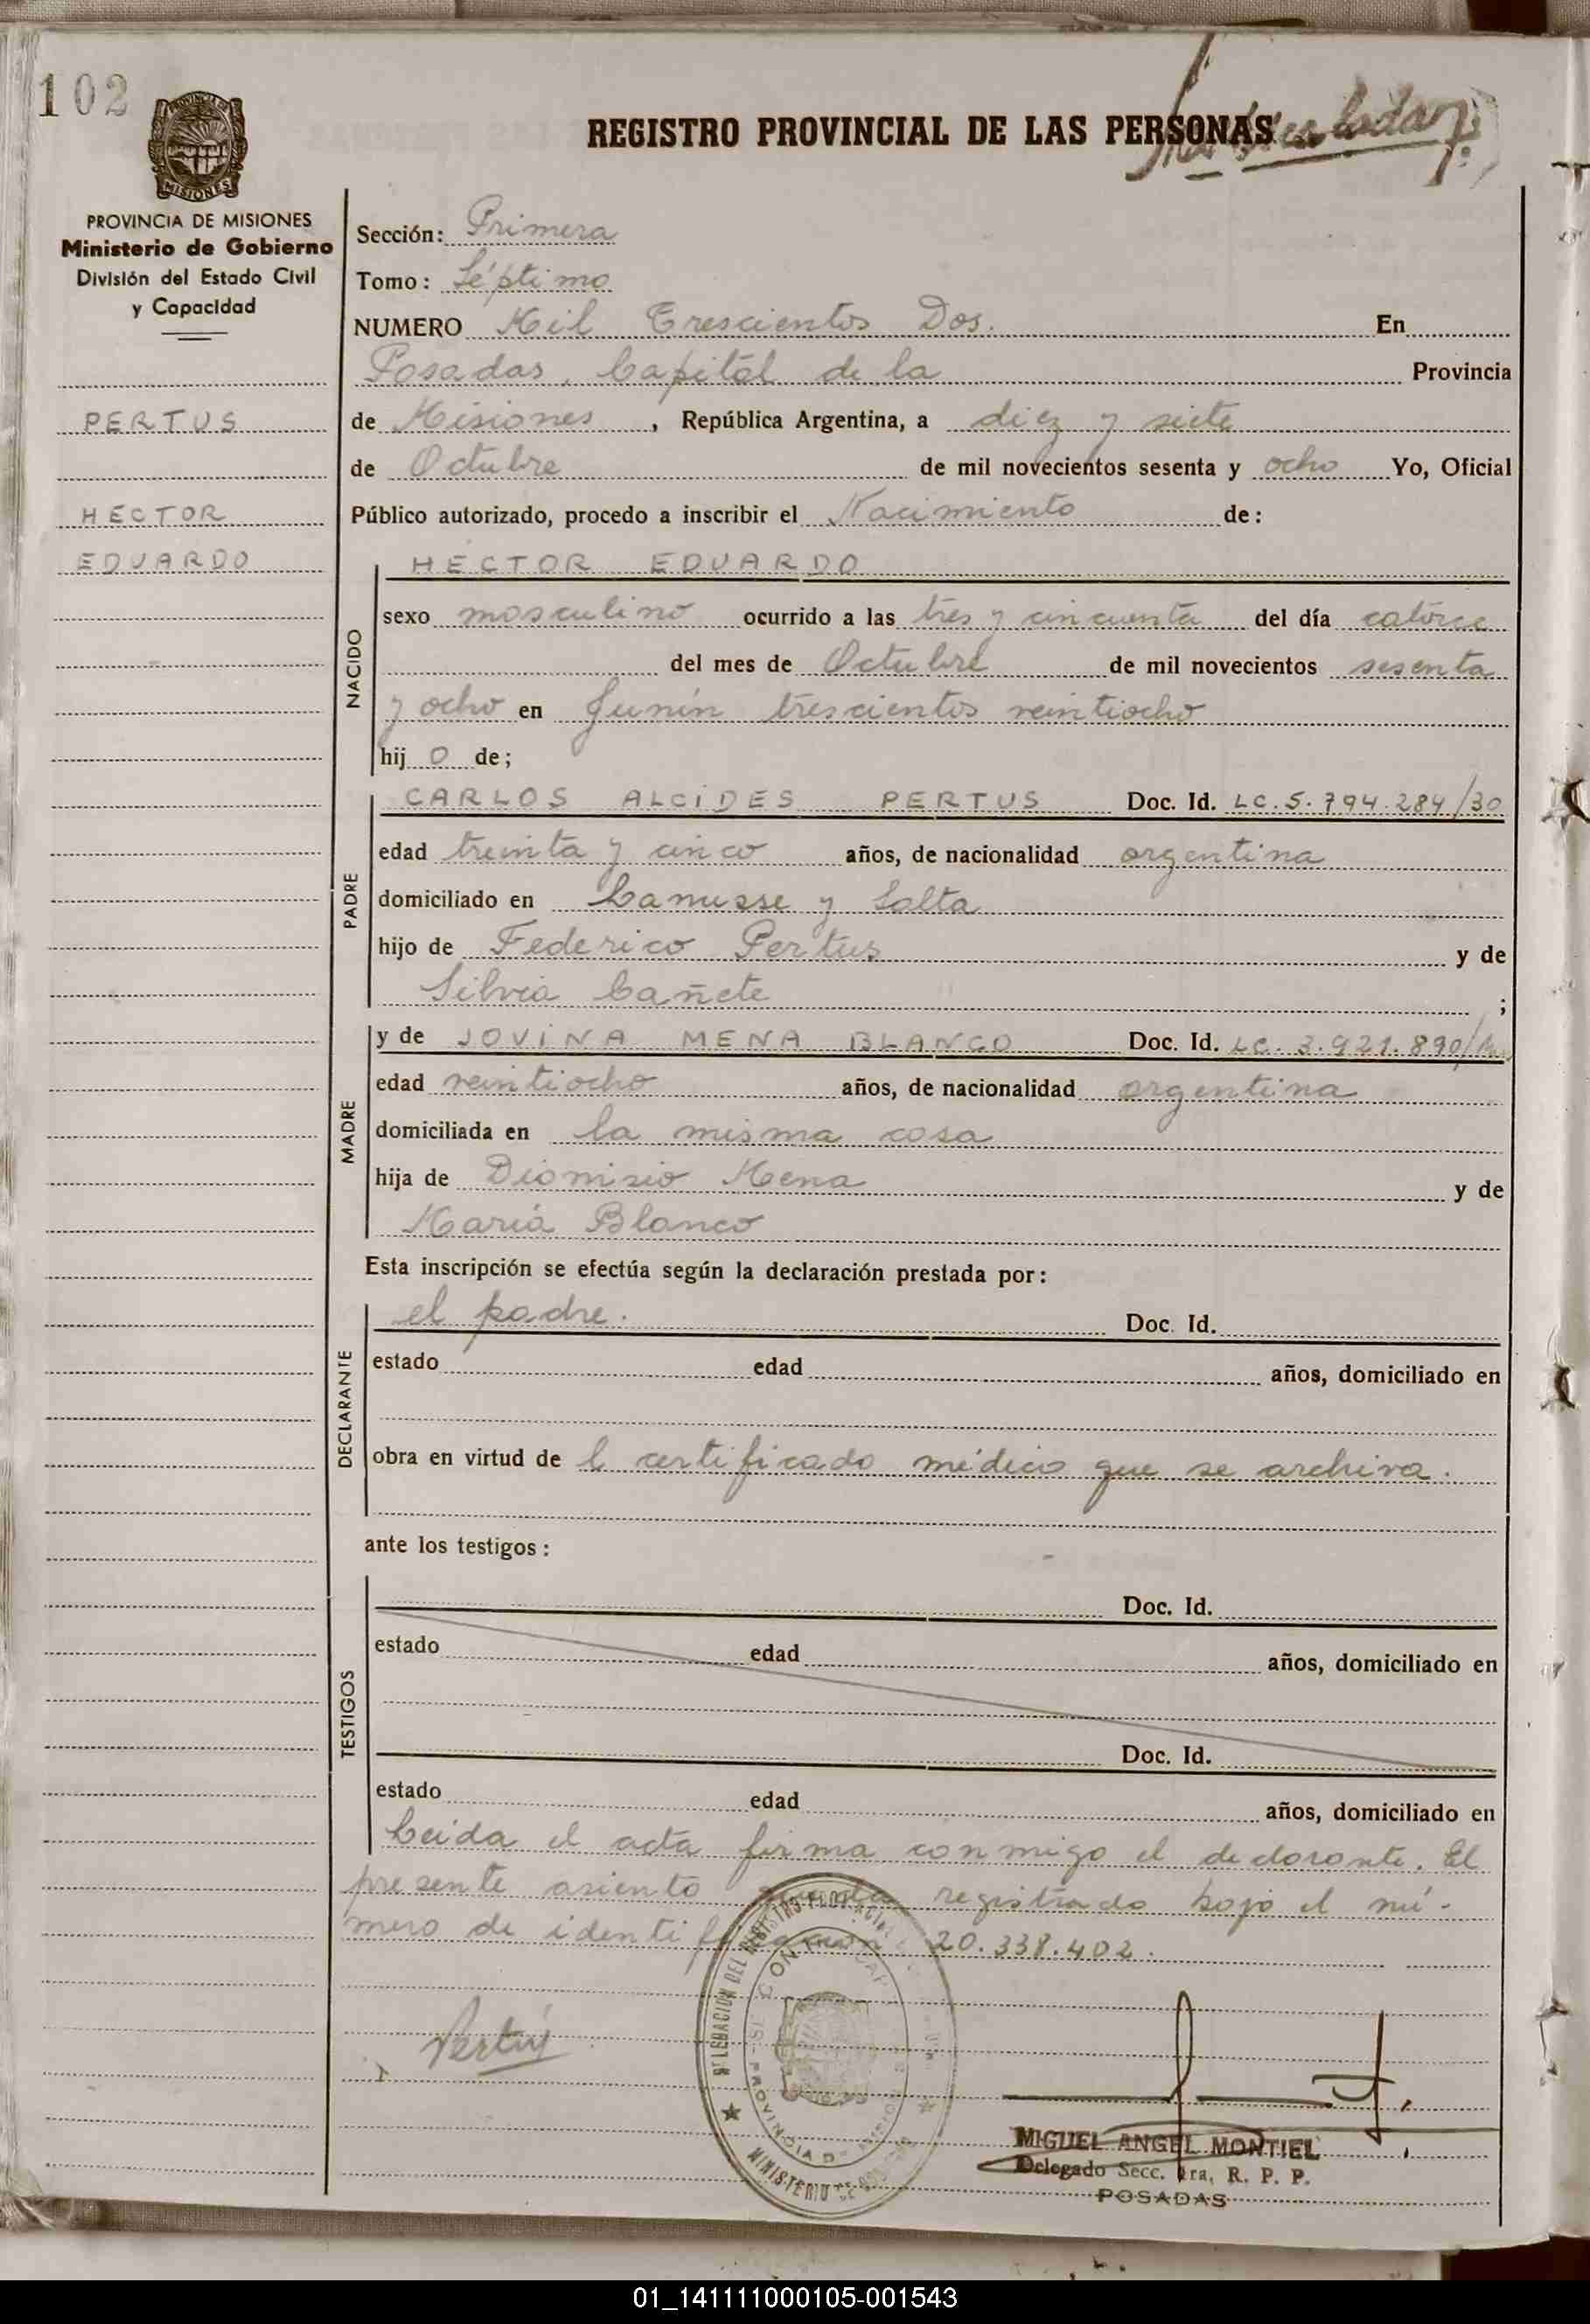 102
REGISTRO PROVINCIAL DE LAS PERSONAS
PROVINCIA DE MISIONES
MISIONES
PROVINCIA DE MISIONES
Ministerio de Gobierno
División del Estado Civil
y Capacidad
PERTUS
HECTOR
EDUARDO
Sección: Primera
Tomo: Séptimo
NUMERO Mil Trescientos Dos. En
Posadas, Capital de la Provincia
de Misiones, República Argentina, a diez y siete
de Octubre de mil novecientos sesenta y ocho Yo, Oficial
Público autorizado, procedo a inscribir el Nacimiento de:
NACIDO
HECTOR EDUARDO
sexo masculino ocurrido a las tres y cincuenta del día catorce
del mes de Octubre de mil novecientos sesenta
y ocho en Junín trescientos veintiocho
hijo de;
PADRE
CARLOS ALCIDES PERTUS Doc. Id. LC. 5.794.284/30
edad treinta y cinco años, de nacionalidad argentina
domiciliado en Lanusse y Salta
hijo de Federico Pertus y de
Silvia Cañete ;
MADRE
y de JOVINA MENA BLANCO Doc. Id. LC. 3.921.890/
edad veintiocho años, de nacionalidad argentina
domiciliada en la misma casa
hija de Dionisio Mena y de
María Blanco
Esta inscripción se efectúa según la declaración prestada por:
DECLARANTE
el padre. Doc. Id.
estado edad años, domiciliado en
obra en virtud de l certificado médico que se archiva.
ante los testigos:
TESTIGOS
Doc. Id.
estado edad años, domiciliado en
Doc. Id.
estado edad años, domiciliado en
Leída el acta firma conmigo el declarante. El
presente asiento queda registrado bajo el nú-
mero de identificación: 20.338.402.
Pertus
MIGUEL ANGEL MONTIEL
Delegado Secc. 1ra, R. P. P.
POSADAS
01_141111000105-001543